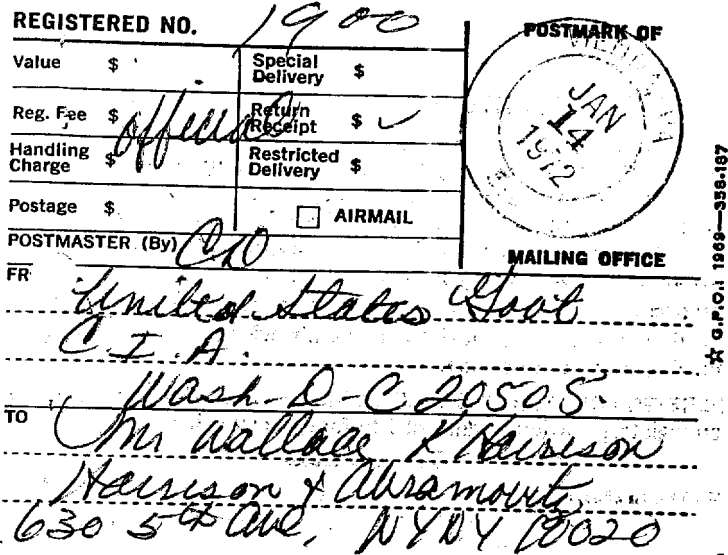 REGISTERED NO. 1900
POSTMARK OF
Value $
Special Delivery $
Reg. Fee $ official
Return Receipt $ ✓
Handling Charge $
Restricted Delivery $
Postage $
☐ AIRMAIL
POSTMASTER (By)
JAN
14
1972
MAILING OFFICE
☆ G.P.O.: 1969—358-187
FR United States Govt
C. I. A.
Wash-D-C 20505.
TO Mr Wallace K Harrison
Harrison & Abramovitz
630 5th Ave, NYNY 10020